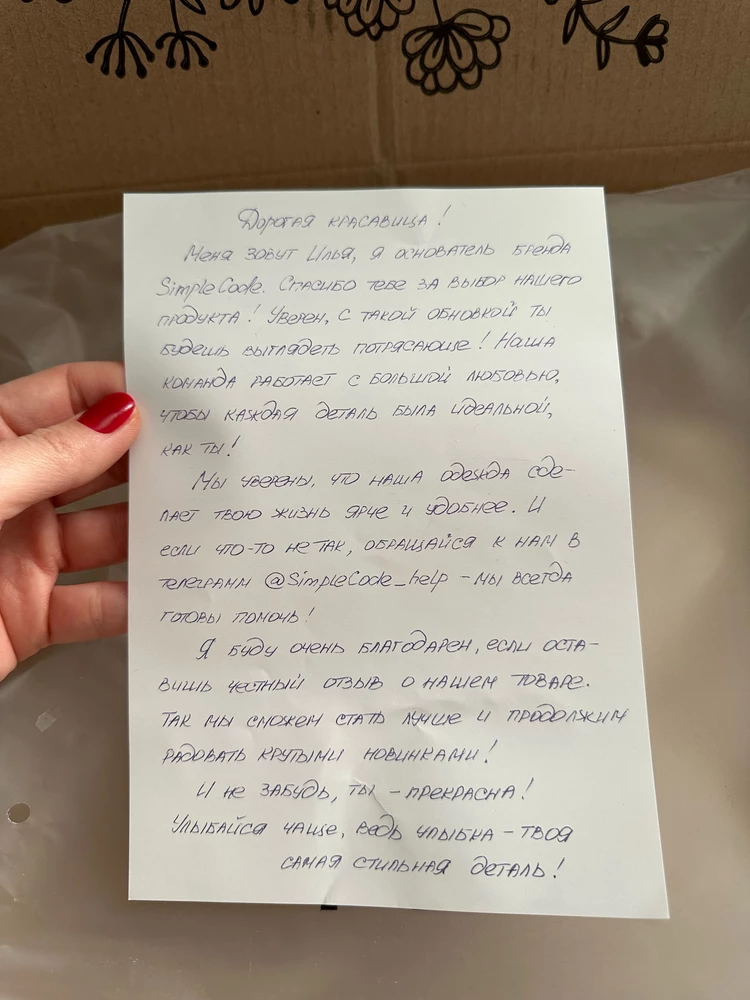 Дорогая красавица!
Меня зовут Илья, я основатель бренда
SimpleCode. Спасибо тебе за выбор нашего
продукта! Уверен, с такой обновкой ты
будешь выглядеть потрясающе! Наша
команда работает с большой любовью,
чтобы каждая деталь была идеальной,
как ты!
Мы уверены, что наша одежда сде-
лает твою жизнь ярче и удобнее. И
если что-то не так, обращайся к нам в
телеграмм @SimpleCode_help - мы всегда
готовы помочь!
Я буду очень благодарен, если оста-
вишь честный отзыв о нашем товаре.
Так мы сможем стать лучше и продолжим
радовать крутыми новинками!
И не забудь, ты - прекрасна!
Улыбайся чаще, ведь улыбка - твоя
самая стильная деталь!